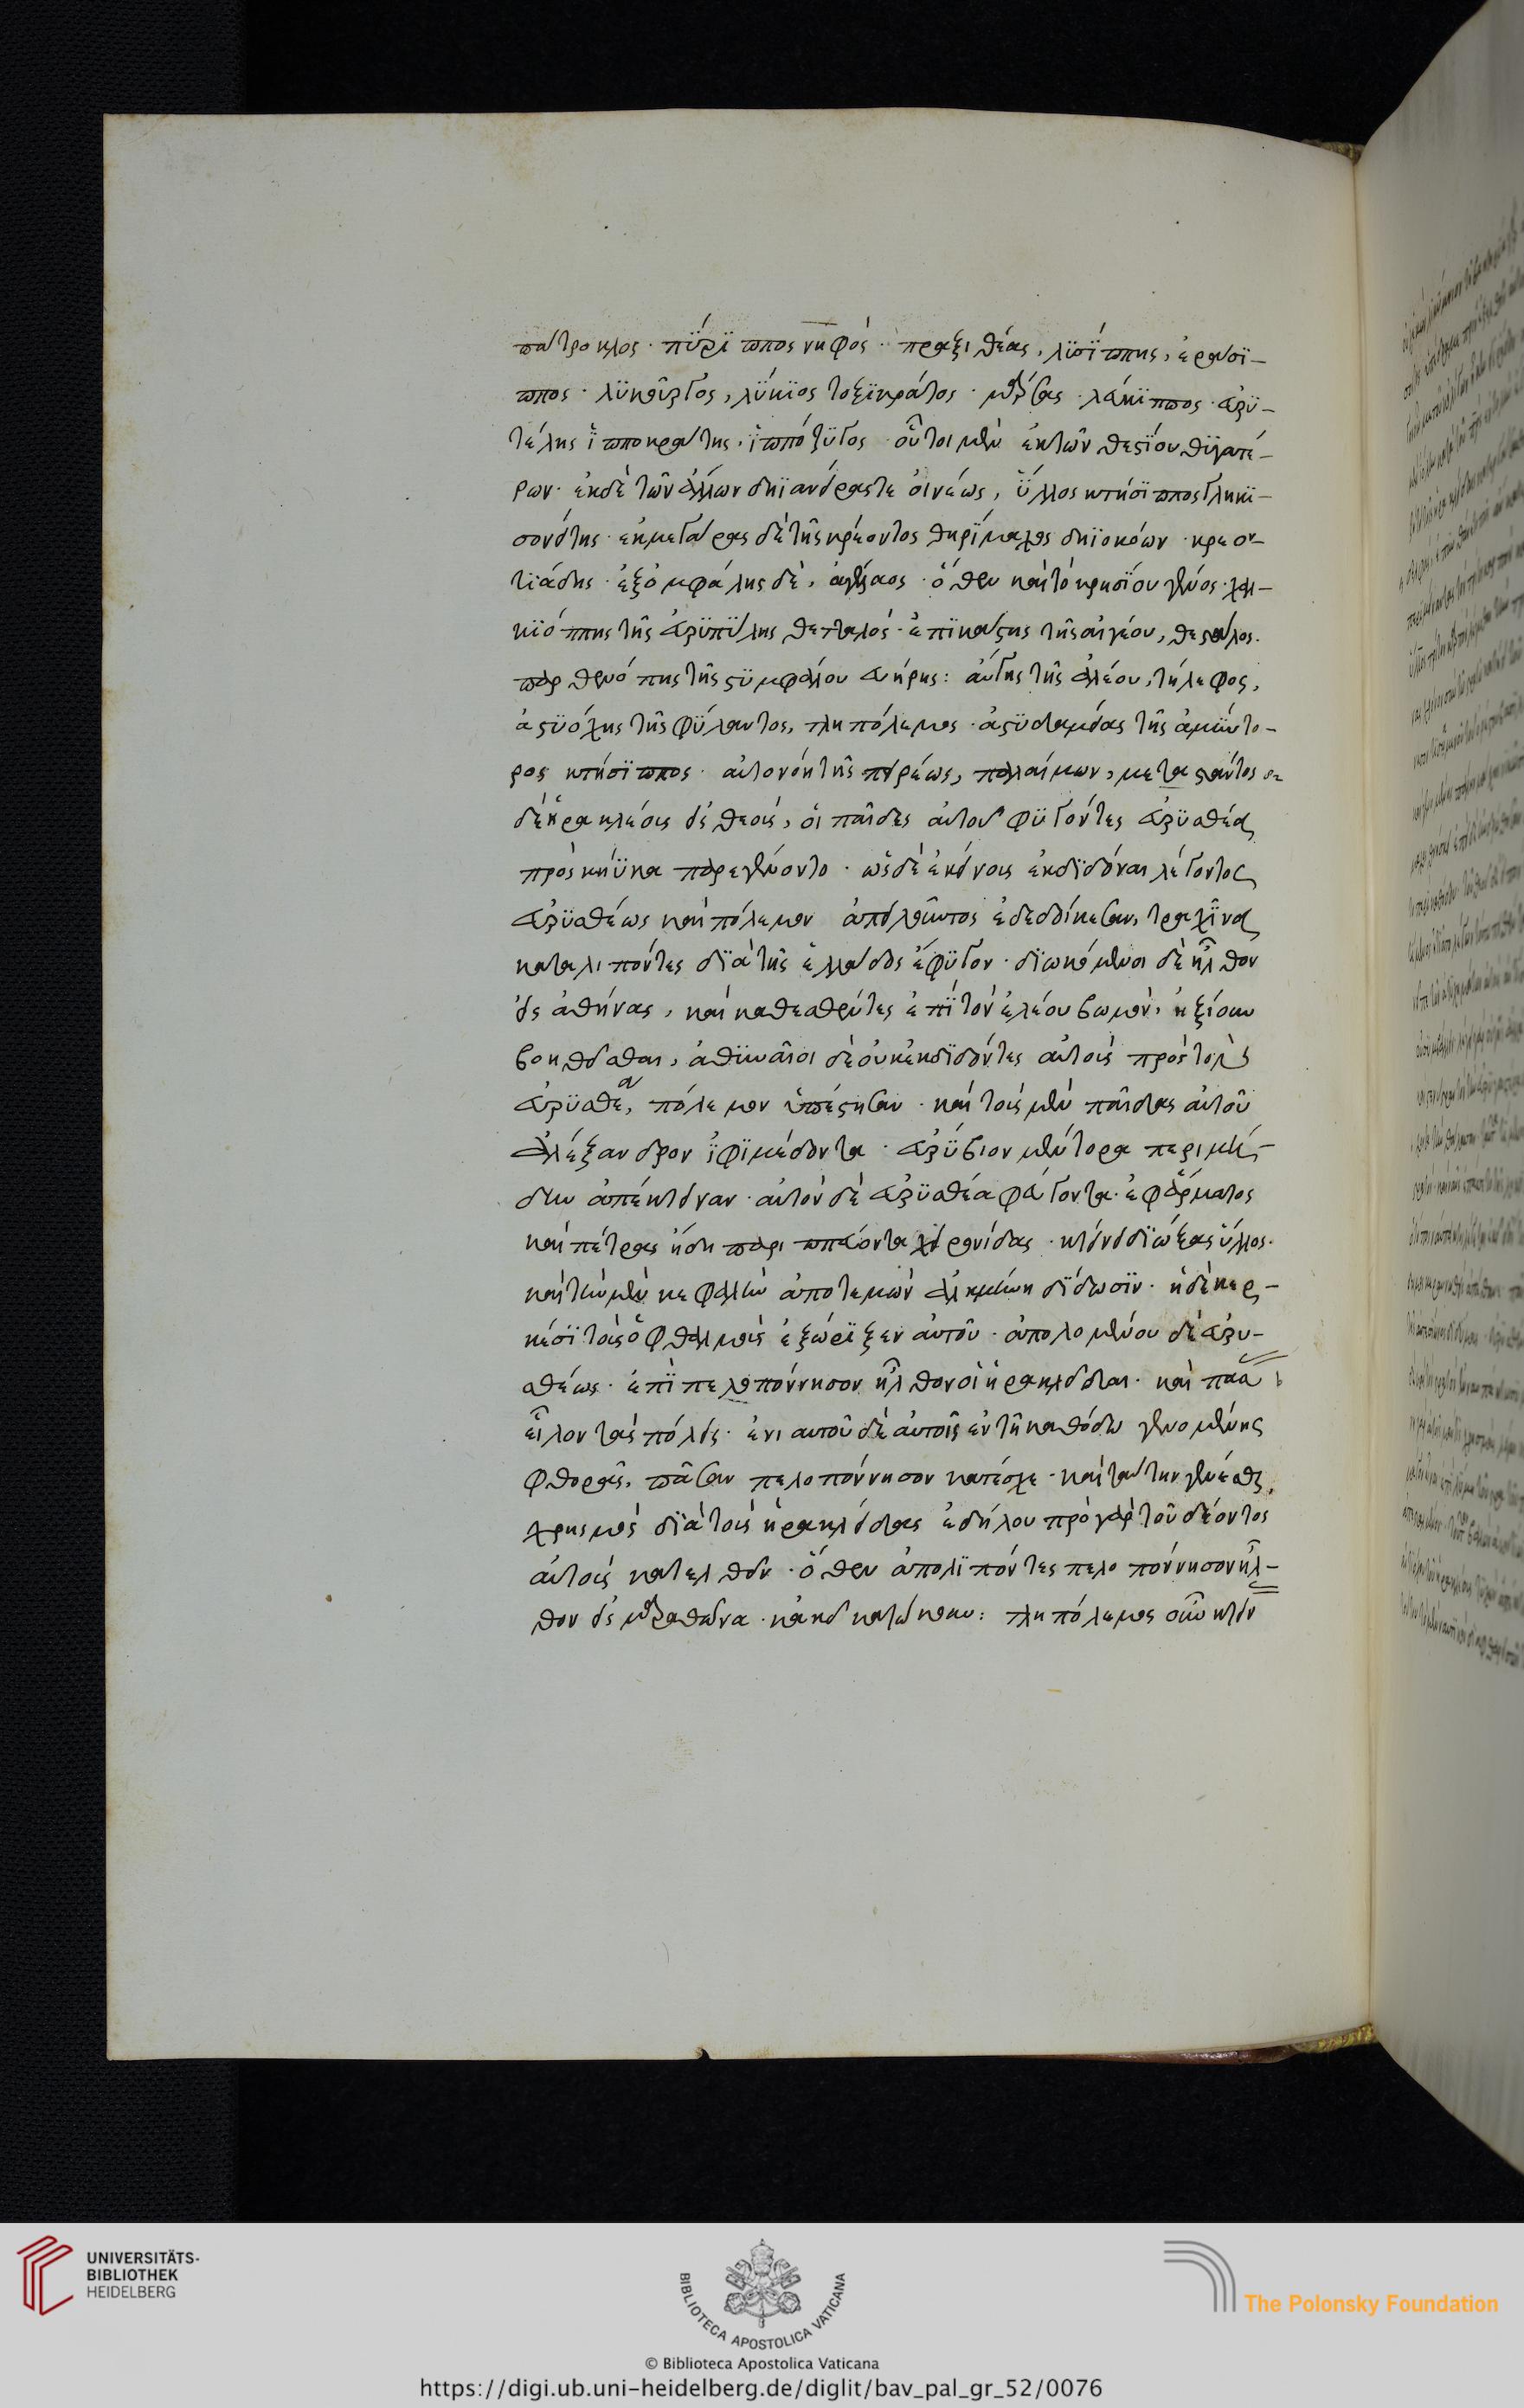 πάτροκλος · πύρϊππος νηφός · πραξιθέας, λϋσίππης, ἐρασϊ-
ππος · λϋκοῦργος, λϋκϊος τοξϊκράτος · μάρσας · λάκϊππος · εὐρϋ-
τέλης ἵπποκράτης · ἵππόζϋγος · οὗτοι μὲν ἐκ τῶν θεστίου θϋγατέ-
ρων · ἐκ δὲ τῶν ἄλλων δηϊανείρας τε οἰνέως, ὕλλος κτήσϊππος γληκϊ-
σονείτης · ἐκ μεγάρας δὲ τῆς κρέοντος θηρίμαχος δηϊοκόων · κρεον-
τϊάδης · ἐξ ὀμφάλης δὲ, ἀγέλαος · ὅθεν καὶ τὸ κρησίου γένος · χαλ-
κϊόππης τῆς εὐρϋπϋλης θετταλός · ἐπϊκάστης τῆς αἰγέου, θεσταλος.
παρθενόπης τῆς στϋμφάλου εὐήρης : αὔγης τῆς ἀλέου, τήλεφος,
ἀστϋόχης τῆς φϋλαντος, τληπόλεμος · ἀστϋδαμείας τῆς ἀμύντο-
ρος κτήσϊππος · αὐτονόη τῆς πειρέως, παλαίμων, μεταστάντος
δὲ ἡρακλέοις εἰς θεοὺς, οἱ παῖδες αὐτοῦ φϋγόντες εὐρϋσθέα
πρὸς κήϋκα παρεγένοντο · ὡς δὲ ἐκείνοις ἐκδϊδόναι λέγοντος
εὐρϋσθέως καὶ πόλεμον ἀπειλοῦντος ἐδεδοίκεσαν, τραχῖνα
καταλιπόντες δϊὰ τῆς ἑλλάδος ἔφϋγον · δϊωκόμενοι δὲ ἦλθον
εἰς ἀθήνας, καὶ καθεσθέντες ἐπϊ τὸν ἐλέου βωμὸν, ἠξίουν
βοηθεῖσθαι, ἀθϊναῖοι δὲ οὐκ ἐκδϊδόντες αὐτοὺς πρὸς τὸν
εὐρϋσθέα, πόλεμον ὑπέστησαν · καὶ τοὺς μὲν παῖδας αὐτοῦ
ἀλέξανδρον ἰφϊμέδοντα · εὐρύβιον μέντορα περιμή-
δην ἀπέκτειναν · αὐτὸν δὲ εὐρϋσθέα φεύγοντα · ἐφ ἅρματος
καὶ πέτρας ἤδη παριππεύοντα χειρονίδας · κτείνει δϊώξας ὕλλος ·
καὶ τὴν μὲν κεφαλὴν ἀποτεμὼν ἀλκμήνη δϊδωσϊν · ἡ δὲ κερ-
κέσϊ τοὺς ὀφθαλμοὺς ἐξώρϊξεν αὐτοῦ · ἀπολομένου δὲ εὐρυ-
σθέως · ἐπϊ πελοπόννησον ἦλθον οἱ ἡρακλεῖδαι · καὶ πάσα
εἷλον τὰς πόλεις · ἐνιαυτοῦ δὲ αὐτοῖς ἐν τῇ καθόδω γενομένης
φθορᾶς, πᾶσαν πελοπόννησον κατέσχε · καὶ ταύτην γενέσθαι,
χρησμὸς δϊὰ τοὺς ἡρακλείδας ἐδήλου πρὸ γὰρ τοῦ δέοντος
αὐτοὺς κατελθεῖν · ὅθεν ἀπολϊπόντες πελοπόννησον ἦλ-
θον εἰς μαραθῶνα · κἀκεῖ κατώκουν : τληπόλεμος οὖν κτείν
UNIVERSITÄTS-
BIBLIOTHEK
HEIDELBERG
BIBLIOTECA APOSTOLICA VATICANA
© Biblioteca Apostolica Vaticana
The Polonsky Foundation
https://digi.ub.uni-heidelberg.de/diglit/bav_pal_gr_52/0076